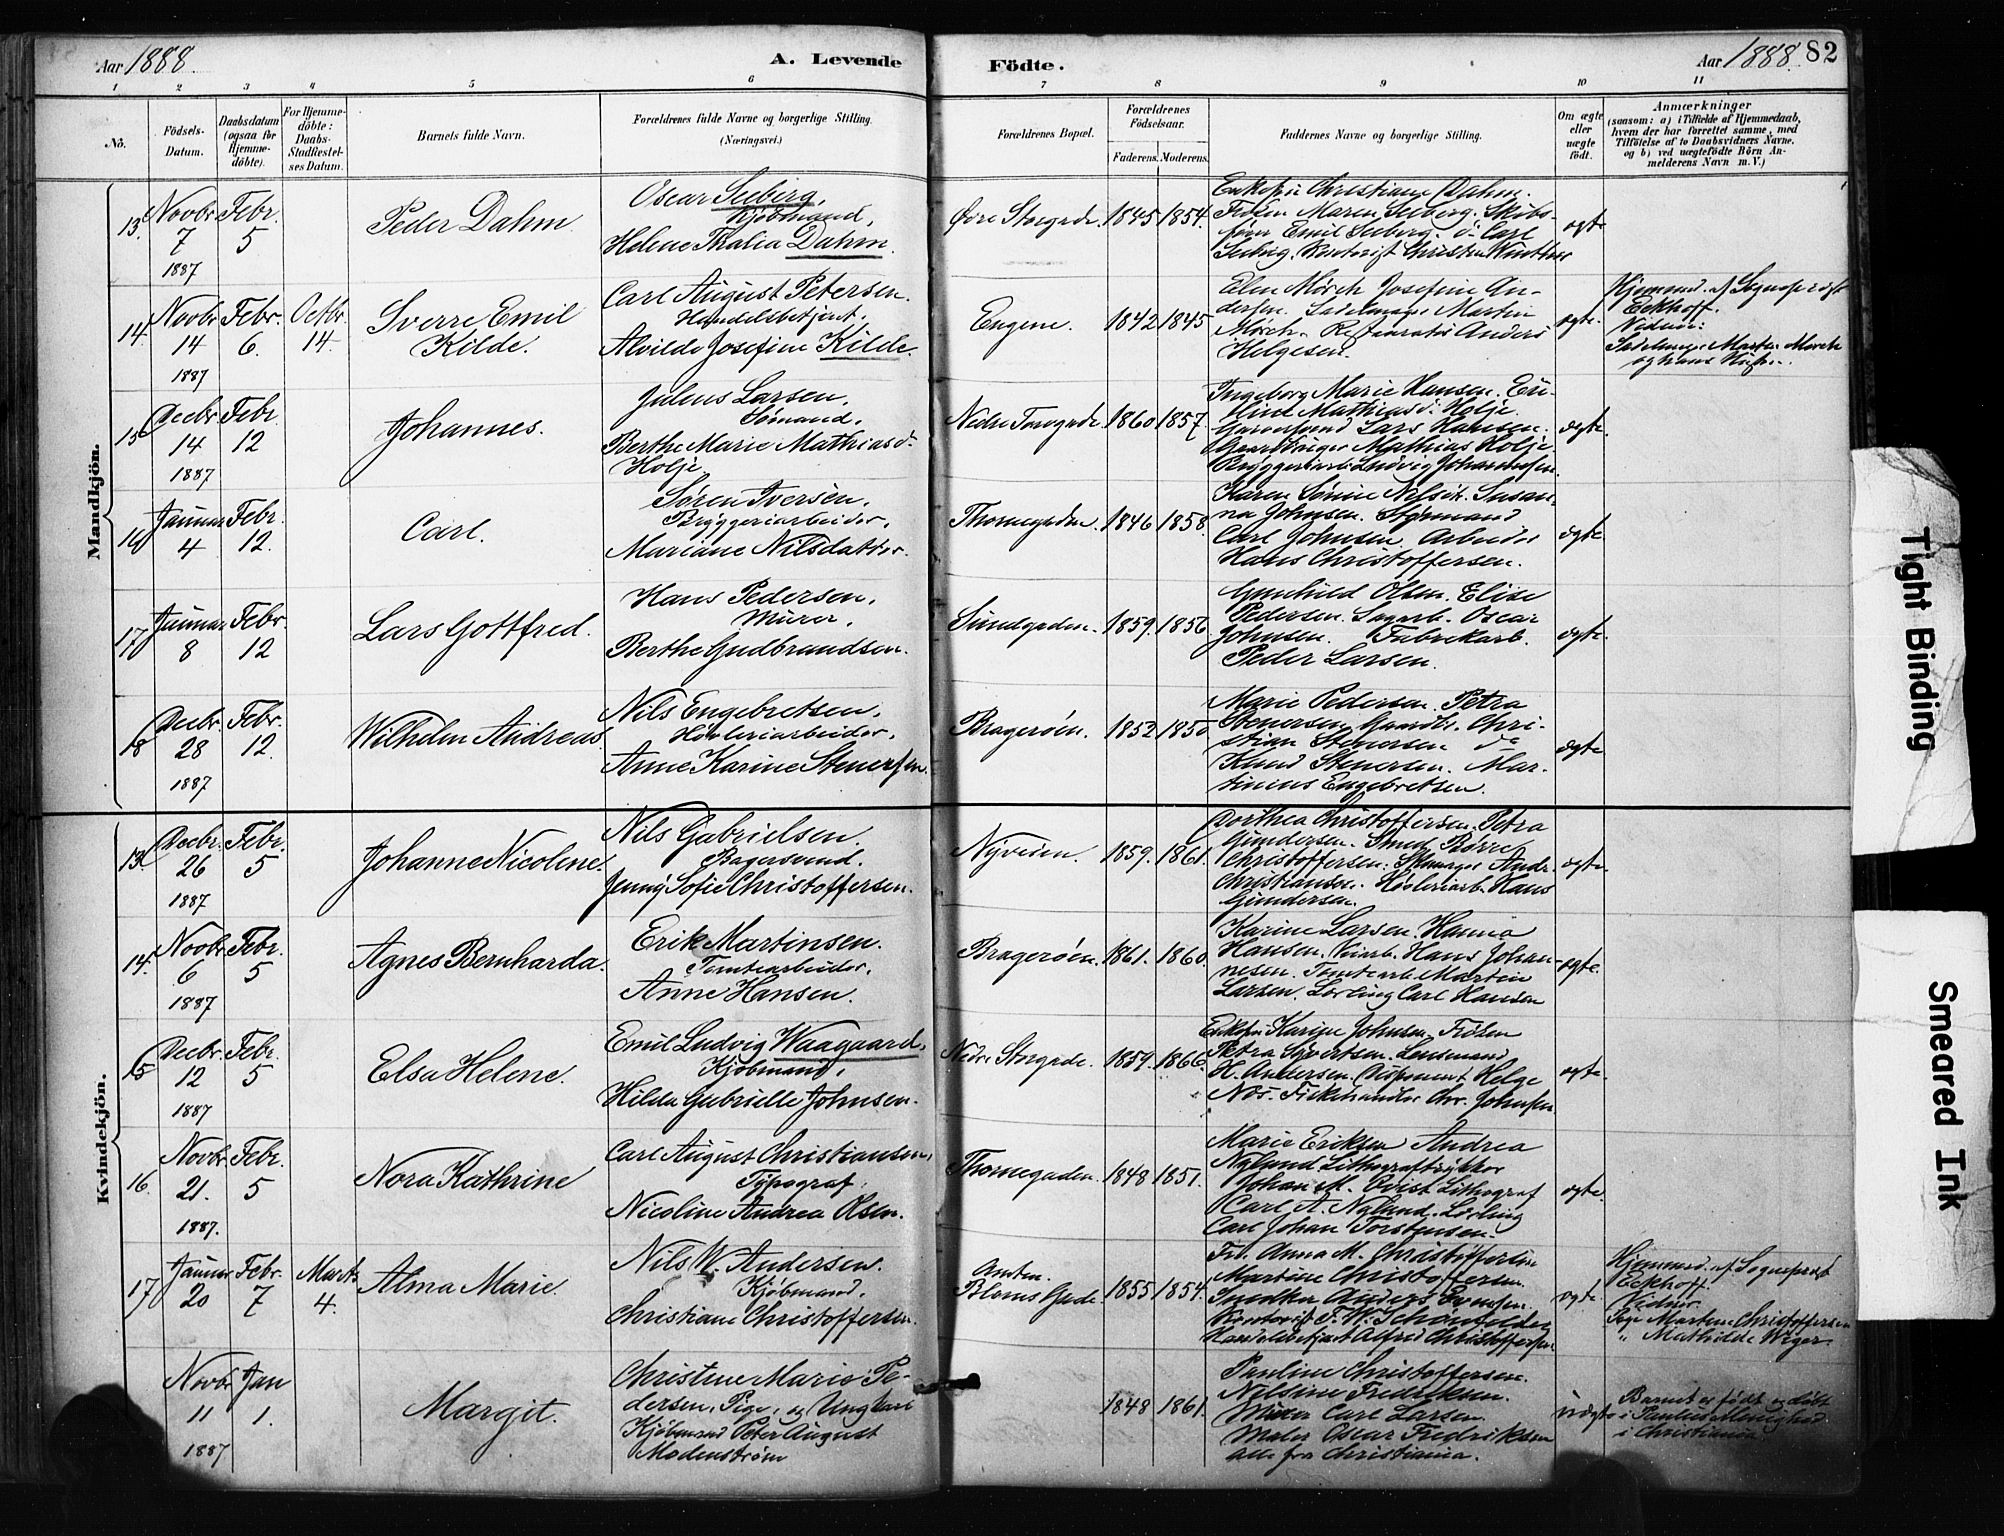 Aar 1888.
A. Levende
Födte.
Aar 1888. 82
1 2 3 4 5 6 7 8 9 10 11
No.
Födsels-Datum.
Daabsdatum (ogsaa for Hjemme-döbte).
For Hjemme-döbte: Daabs-Stadfæstel-ses Datum.
Barnets fulde Navn.
Forældrenes fulde Navne og borgerlige Stilling.
(Næringsvei.)
Forældrenes Bopæl.
Forældrenes Födselsaar.
Faderens. Moderens.
Faddernes Navne og borgerlige Stilling.
Om ægte eller uægte födt.
Anmærkninger
(saasom: a) i Tilfælde af Hjemmedaab, hvem der har forrettet samme, med Tilföielse af to Daabsvidners Navne, og b) ved uægtefödte Börn An-melderens Navn m. V.)
Mandkjön.
13. Novbr. 7 1887 Febr. 5
Peder Dahm
Oscar Seeberg,
Kjöbmand,
Helene Thalia Dahm.
Øvre Storgade 1845 1854.
Christiane Dahm.
Frøken Maren Seeberg. Skibs-
fører Emil Seeberg. Carl
Seeberg.
ægte
14. Novbr. 14 1887 Febr. 6. Octbr. 14.
Sverre Emil
Kilde.
Carl August Petersen.
Handelsbetjent,
Alvilde Josefine Kilde.
Engene. 1842 1845
Elen Mørch Josefine An-
dersen. Sadelmager Martin
Mørch. Restauratør Anders
Helgesen.
ægte.
Hjemmed. af Sogneprest
Eckhoff.
Vidner:
Martin Mørch
og hans Hustru.
15 Decbr. 14 1887 Febr. 12
Johannes.
Julius Larsen,
Sømand,
Berthe Marie Mathiasd.
Holje.
Nedre Torvgade. 1860 1857.
Ingeborg Marie Hansen.
Mathiasd. Holje.
Garversvend Lars Hansen.
Mathias Holje.
Bryggeriarb. Ludvig Johannesen
ægte.
16 Januar 4 Febr. 12.
Carl.
Søren Iversen,
Bryggeriarbeider,
Mariane Nilsdatter.
Thornegaden. 1846 1858.
Karen Sørine Nilsen. Susan-
na Johnsen. Styrmand
Carl Johnsen. Arbeider
Hans Christoffersen.
ægte.
17 Januar 8 Febr. 12
Lars Gottfred.
Hans Pedersen,
Murer,
Berthe Gudbrandsen.
Sundgaden. 1859. 1856
Gunhild Olsen. Elise
Pedersen. Sagarb. Oscar
Johnsen. Fabrikarb.
Peder Larsen.
ægte.
18 Decbr. 28 1887 Febr. 12.
Wilhelm Andreas
Nils Engebretsen,
Høvleriarbeider,
Anne Karine Stenersen.
Bragerøen. 1852 1850
Marie Pedersen. Petra
Stenersen. Chri-
stian Stenersen
Knud Stenersen. Mar-
tinius Engebretsen.
ægte
Kvindekjön.
13. Decbr. 26 1887 Febr. 5
Johanne Nicoline.
Nils Gabrielsen,
Bagersvend.
Jenny Sofie Christoffersen.
Nyveien. 1859. 1861.
Dorthea Christoffersen. Petra
Gundersen. Smed Børre
Christoffersen. Skomager Andr.
Christiansen. Høvleriarb. Hans
Gundersen.
ægte.
14. Novbr. 6 1887 Febr. 5
Agnes Bernharda.
Erik Martinsen.
Tomtearbeider,
Anne Hansen.
Bragerøen. 1861. 1860.
Karine Larsen. Hanna
Hansen. Hans Johan-
nesen. Tomtearb. Martin
Larsen. Lærling Carl Hansen
ægte.
15 Decbr. 12 1887 Febr. 5
Elsa Helene.
Emil Ludvig Waagaard,
Kjøbmand,
Hilda Gabrielle Johnsen.
Nedre Storgade. 1859. 1866.
Karine Johnsen Frøken
Petra Syvertsen. Lensmand
H. Andersen. Disponent Helge
Næs. Fiskehandler Chr. Johnsen
ægte.
16. Novbr. 21. 1887. Febr. 5
Nora Kathrine
Carl August Christiansen,
Typograf,
Nicoline Andrea Olsen.
Thornegaden. 1848 1851.
Marie Eriksen Andrea
Nyland. Lithograftrykker
Johan M. Qvist Lithograf
Carl A. Nyland. Lærling
Carl Johan Torstensen.
ægte.
17 Januar 20 Febr. 7 Marts 4.
Alma Marie.
Nils W. Andersen.
Kjøbmand,
Christiane Christoffersen.
Amten.
Bloms Gade. 1855 1854.
Fr. Anna M. Christoffersen
Martine Christoffersen.
Snedker Anders Evensen
Kontorist F. W. Schønfelder
Handelsbetjent Alfred Christoffersen.
ægte.
Hjemmed. af Sogneprest
Eckhoff.
Vidner:
Pige Martine Christoffersen
" Mathilde Wiger.
Novbr. 11 1887 Jan 1.
Margit.
Christine Marie Pe-
dersen, Pige, og Ungkarl
Kjøbmand Peter August
Modenstrøm
1848 1861.
Pauline Christoffersen.
Nelsine Fredriksen.
Murer Carl Larsen.
Maler Oscar Fredriksen
alle fra Christiania.
uægte
Barnet er født og døbt
i Paulus Menighed
i Christiania.
Tight Binding
Smeared Ink